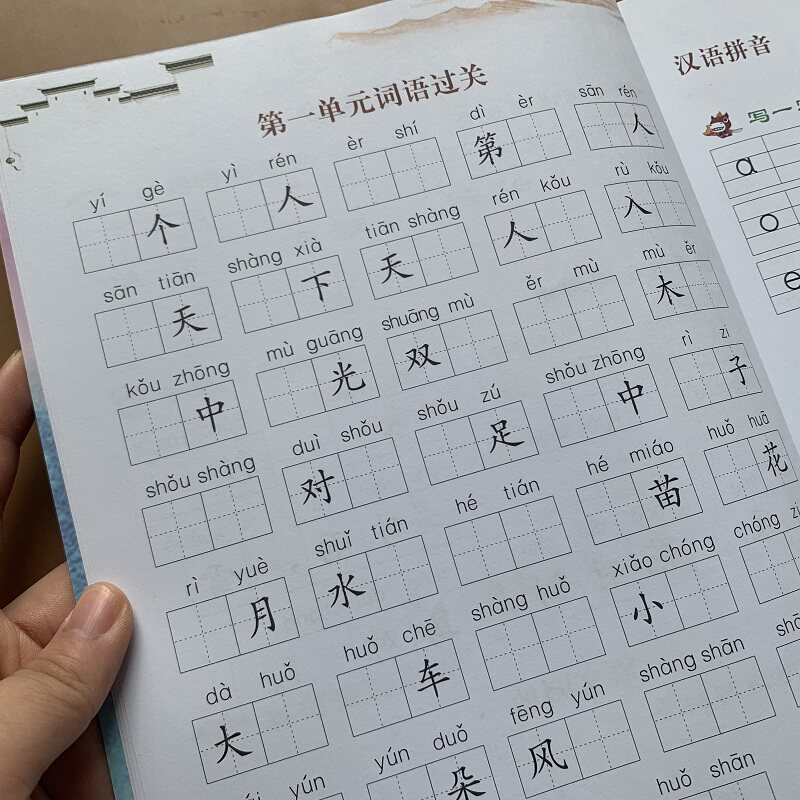 第一单元词语过关
yí gè yì rén èr shí dì èr sān rén
个 人 第 人
sān tiān shàng xià tiān shàng rén kǒu rù kǒu
天 下 天 人 入
kǒu zhōng mù guāng shuāng mù ěr mù mù ěr
中 光 双 木
shǒu shàng duì shǒu shǒu zú shǒu zhōng rì zi
对 足 中 子
rì yuè shuǐ tián hé tián hé miáo huǒ huā
月 水 苗 花
dà huǒ huǒ chē shàng huǒ xiǎo chóng chóng
大 车 小
yún yún duǒ fēng yún shàng shān
朵 风
huǒ shān
汉语拼音
写一
a
o
e